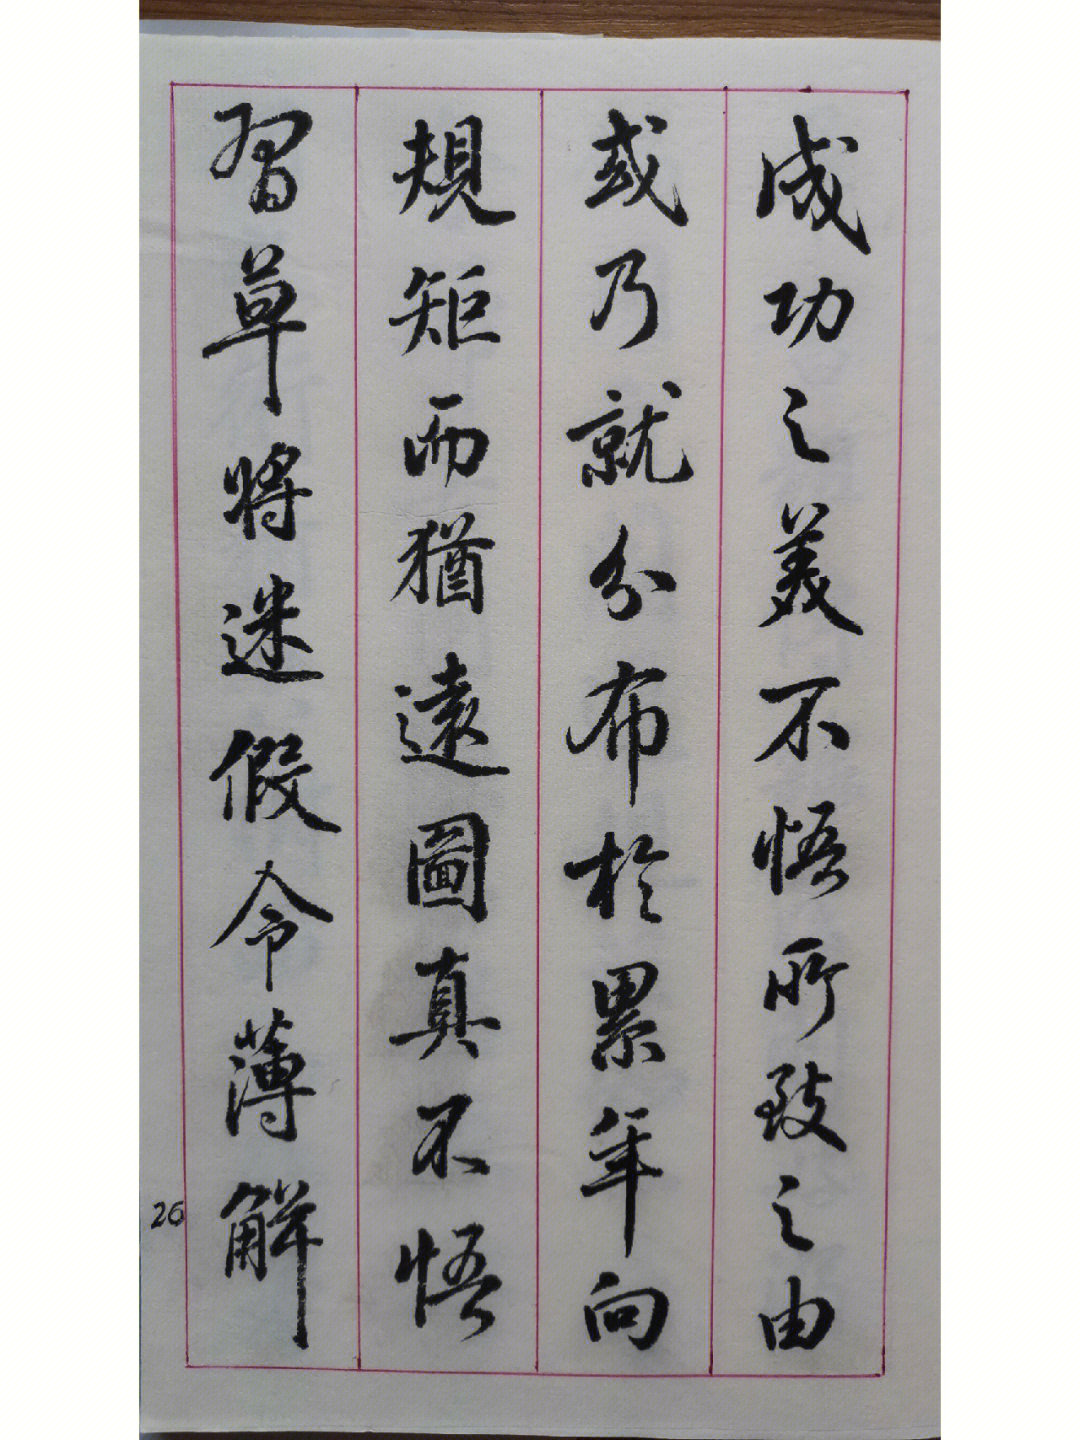 成功之美不悟所致之由
或乃就分布於累年向
規矩而猶遠圖真不悟
習草將迷假令薄解
26